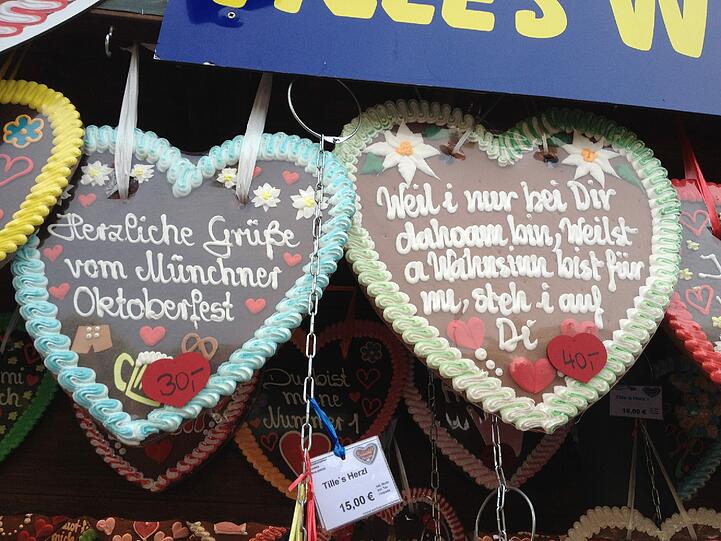 Herzliche Grüße
vom Münchner
Oktoberfest
30,-
Weil i nur bei Dir
dahoam bin, Weilst
a Wahnsinn bist für
mi, steh i auf
Di
40,-
Du bist
meine
Nummer 1
Tille´s Herzl
15,00 €
Tille´s Herzl
18,00 €